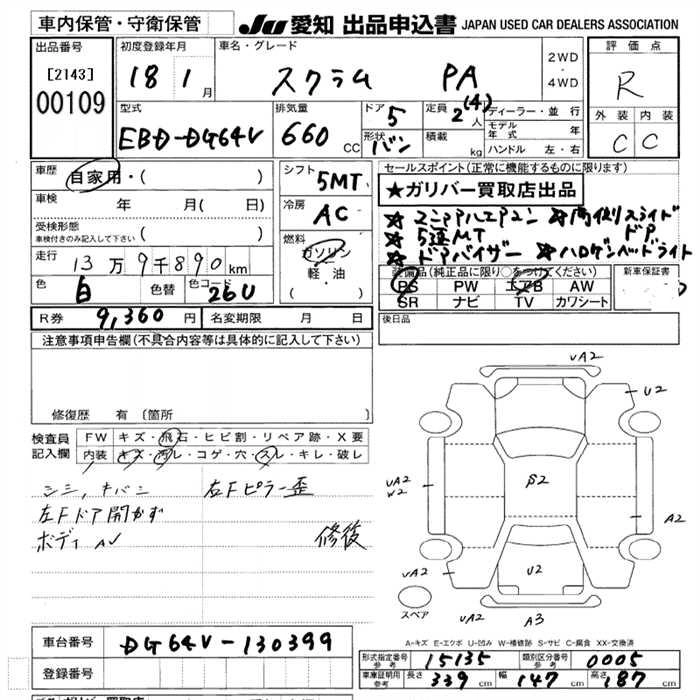 車内保管・守衛保管
JU 愛知 出品申込書 JAPAN USED CAR DEALERS ASSOCIATION
出品番号
[2143]
00109
初度登録年月
18 1 月
車名・グレード
スクラム PA
2WD
・
4WD
評価点
R
外装 内装
C C
型式
EBD-DG64V
排気量
660 CC
ドア
5
形状
バン
定員
2(4)人
積載
kg
ディーラー・並行
モデル年式 年
ハンドル 左・右
車歴
自家用・( )
車検 年 月( 日)
受検形態
車検付きのみ記入して下さい ( )
走行
13万9千890km
色
白
色替
色コード
26U
シフト
5MT
冷房
AC
燃料
ガソリン
軽油
( )
セールスポイント(正常に機能するものに限ります)
★ガリバー買取店出品
★マニュアルエアコン ★両側スライドドア
★5速MT
★ドアバイザー ★ハロゲンヘッドライト
装備品(純正品に限り○をつけてください)
PS PW エアB AW
SR ナビ TV カワシート
新車保証書
後日品
R券 9,360円 名変期限 月 日
注意事項申告欄(不具合内容等は具体的に記入して下さい)
修復歴 有〔箇所
検査員
記入欄
FW キズ・飛石・ヒビ割・リペア跡・X要
内装 キズ・汚レ・コゲ・穴・スレ・キレ・破レ
左Fピラー歪
左Fドア開かず
ボディ AU
修復
UA2
U2
UA2
W2
A2
S2
U2
UA2
UA2
A3
スペア
A-キズ E-エクボ U-凹み W-補修跡 S-サビ C-腐食 XX-交換済
車台番号 DG64V-130399
登録番号
形式指定番号
参考
15135
類別区分番号
参考
0005
車庫証明用
参考
長さ 339 cm 幅 147 cm 高さ 187 cm